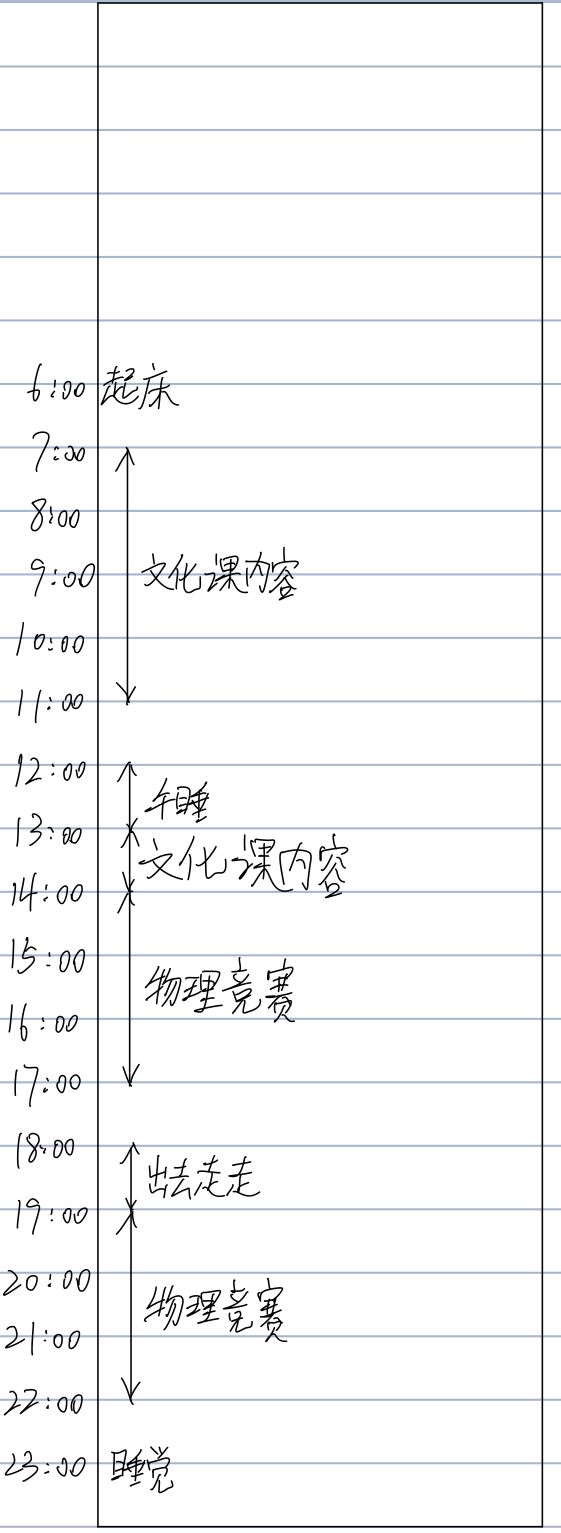 6:00 起床
7:00
8:00
9:00 文化课内容
10:00
11:00
12:00
午睡
13:00
文化课内容
14:00
15:00
物理竞赛
16:00
17:00
18:00
出去走走
19:00
20:00
物理竞赛
21:00
22:00
23:00 睡觉